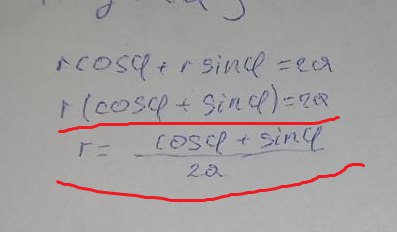 r cosφ + r sinφ = 2a
r (cosφ + sinφ) = 2a
r = (cosφ + sinφ) / 2a